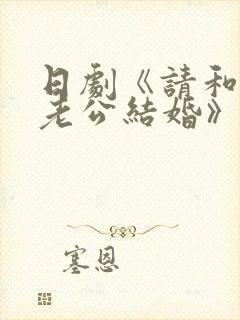 日劇《請和
老公結婚》
塞恩